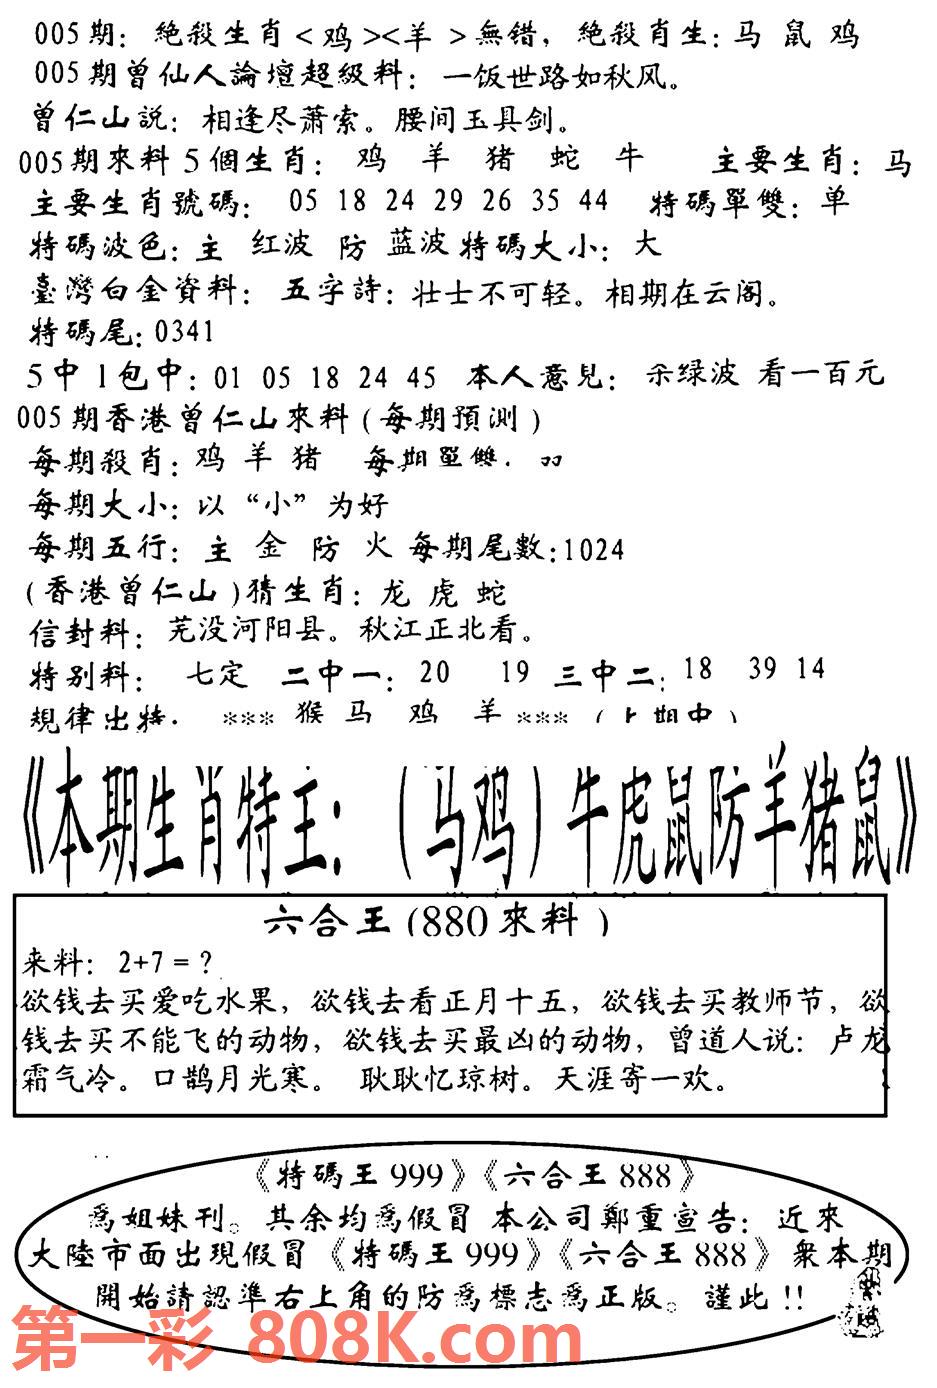 005期：絶殺生肖<鸡><羊>無错，絶殺肖生:马 鼠 鸡
005期曾仙人論壇超級料：一饭世路如秋风。
曾仁山説：相逢尽萧索。腰间玉具剑。
005期來料5個生肖：鸡 羊 猪 蛇 牛 主要生肖：马
主要生肖號碼：05 18 24 29 26 35 44 特碼單雙：单
特碼波色：主 红波 防 蓝波 特碼大小：大
臺灣白金資料：五字詩：壮士不可轻。相期在云阁。
特碼尾：0341
5中1包中：01 05 18 24 45 本人意見：买绿波 看一百元
005期香港曾仁山來料(每期預測)
每期殺肖：鸡 羊 猪 每期單雙：
每期大小：以“小”为好
每期五行：主 金 防 火 每期尾數：1024
(香港曾仁山)猜生肖：龙 虎 蛇
信封料：芜没河阳县。秋江正北看。
特别料：七定 二中一：20 19 三中二：18 39 14
規律出特：*** 猴 马 鸡 羊 *** (上期中)
《本期生肖特王：(马鸡)牛虎鼠防羊猪鼠》
六合王(880來料)
来料：2+7=?
欲钱去买爱吃水果，欲钱去看正月十五，欲钱去买教师节，欲
钱去买不能飞的动物，欲钱去买最凶的动物，曾道人说：卢龙
霜气冷。口鹊月光寒。 耿耿忆琼树。天涯寄一欢。
《特碼王999》《六合王888》
爲姐妹刊。其余均爲假冒 本公司鄭重宣告：近來
大陸市面出現假冒《特碼王999》《六合王888》衆本期
開始請認準右上角的防爲標志爲正版。謹此!!
第一彩 808K.com